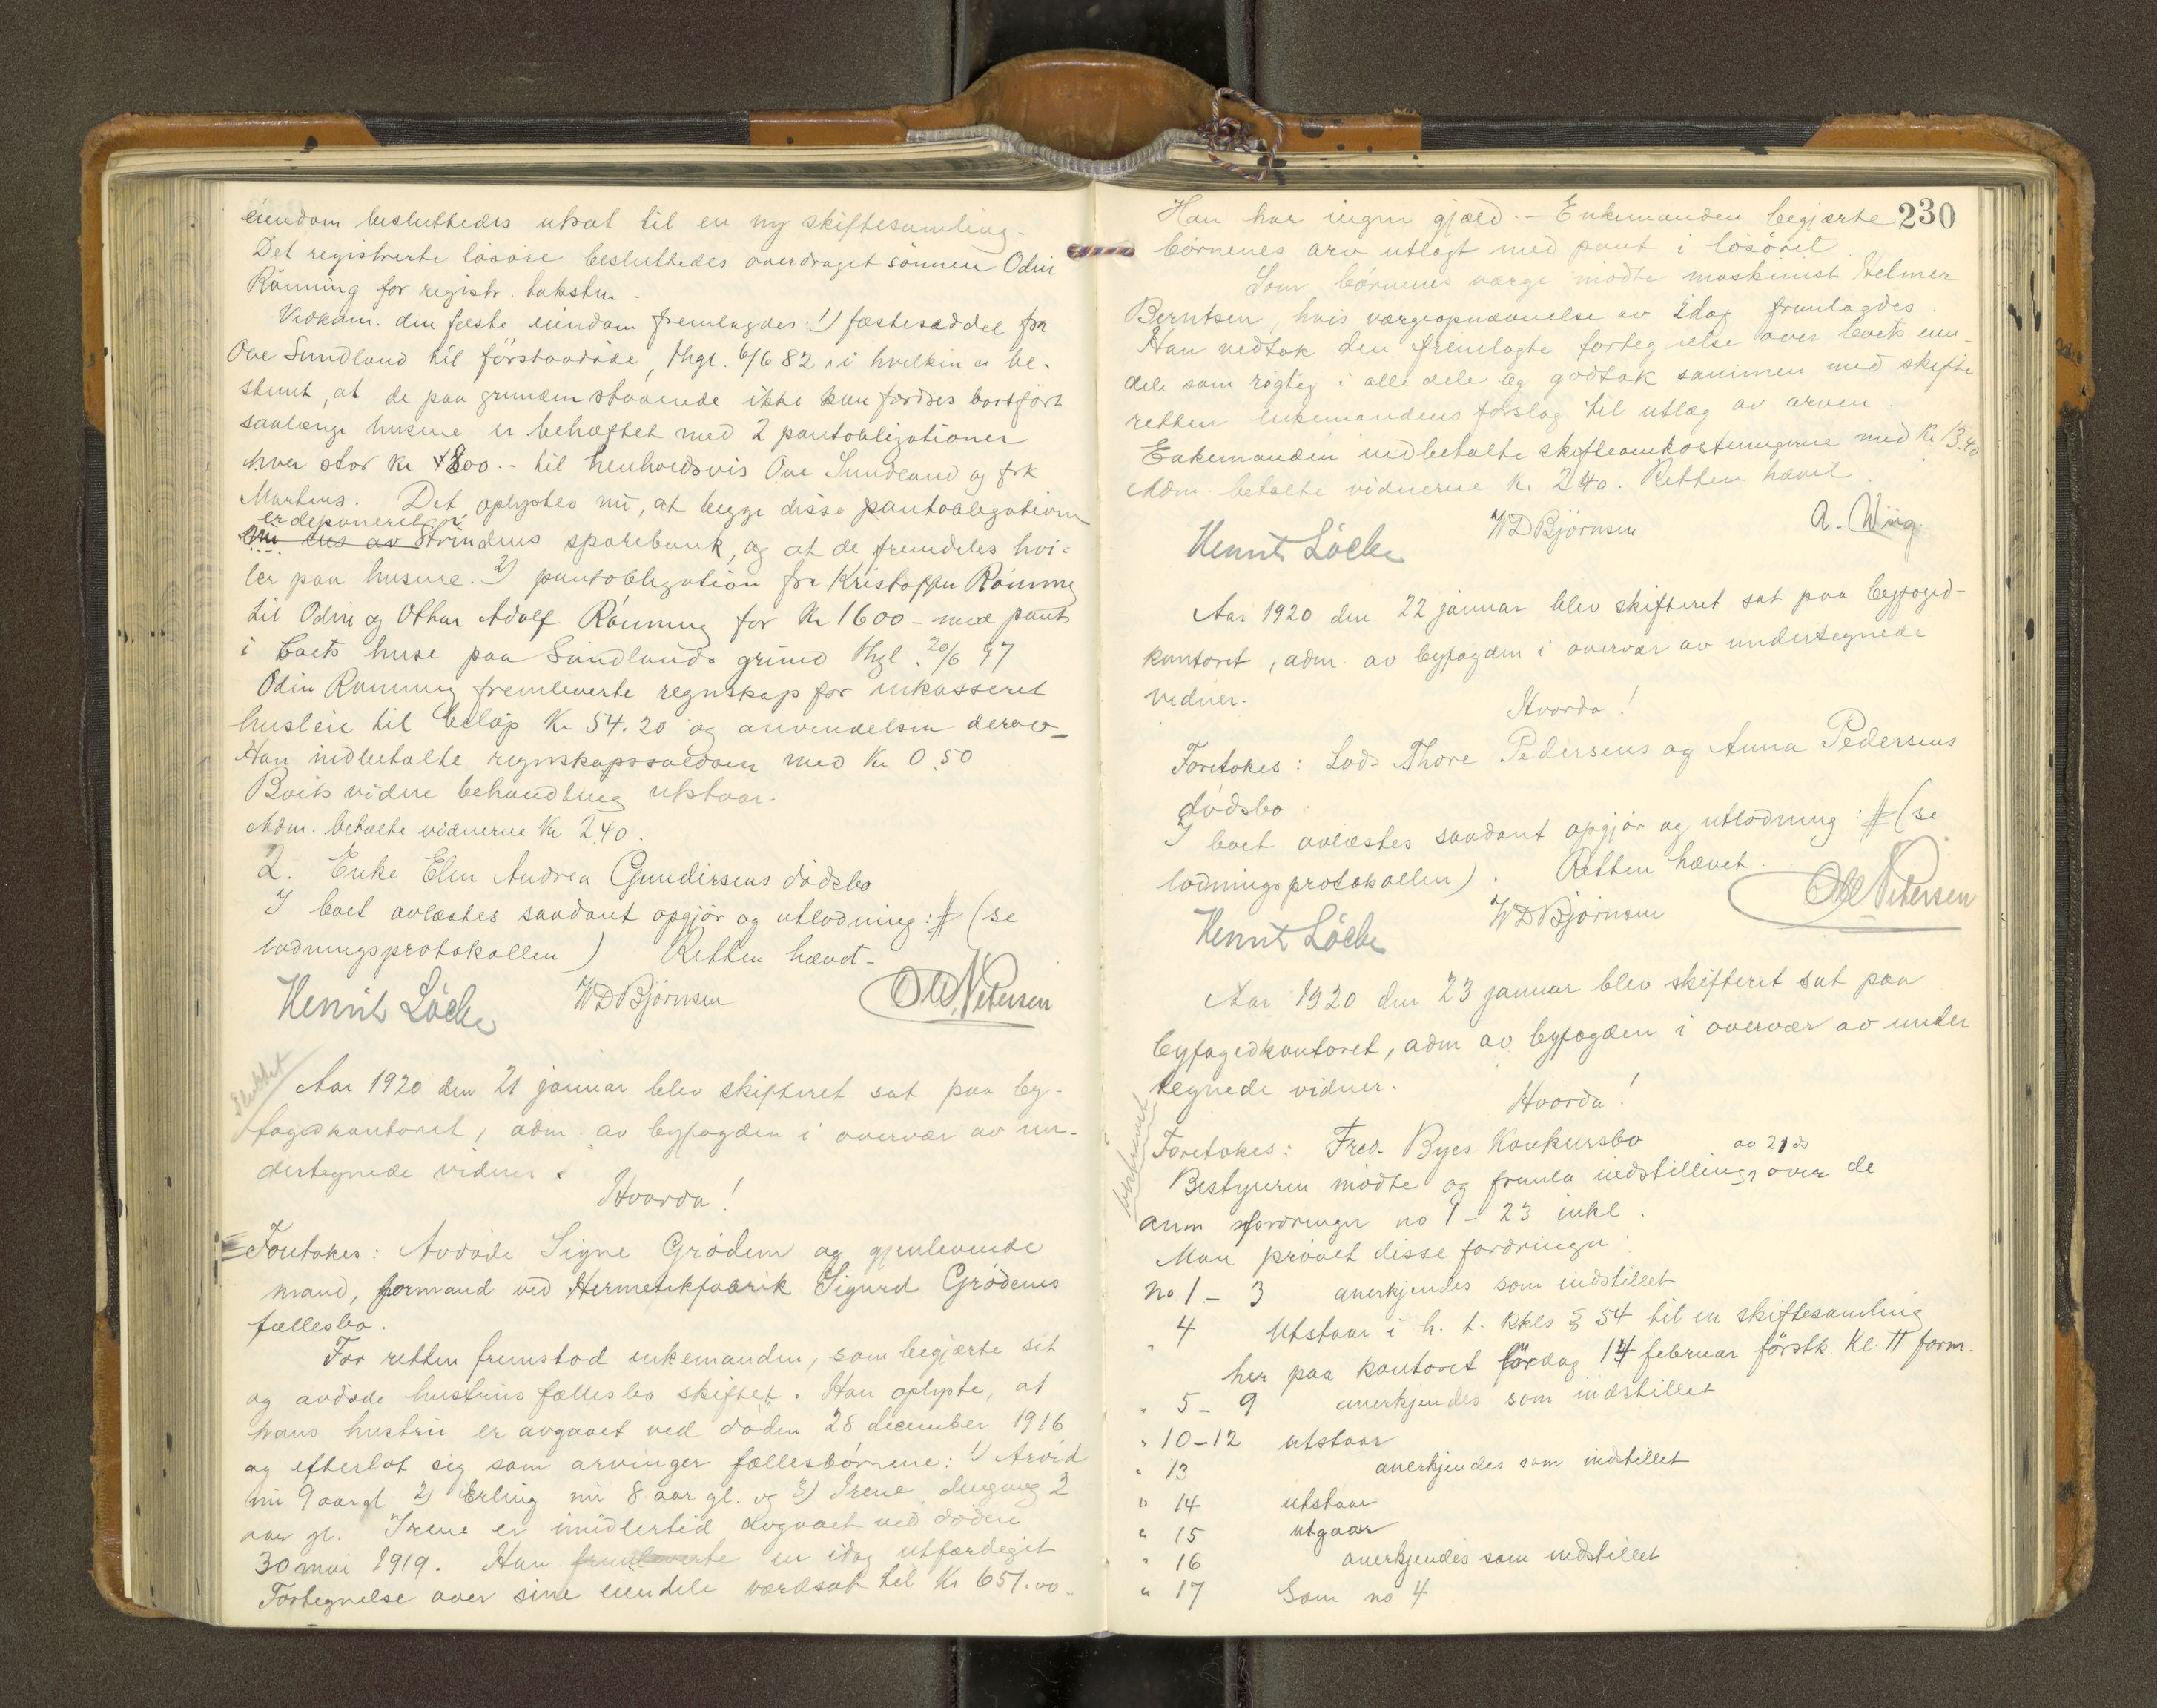 eiendom besluttedes utsat til en ny skiftesamling.
Det registrerte løsøre besluttedes overdraget sønnen Odin
Rønning for registr. taksten.
Vedkom. den faste eiendom fremlagdes: 1) fæsteseddel fra
Ove Sundland til førstavdøde, thgl. 6/6 82 i hvilken er be-
stemt, at de paa grunden staaende ikke kan fordres bortført
saalænge husene er behæftet med 2 pantobligationer
hver stor Kr 800.- til henholdsvis Ove Sundland og frk
Martens. Det oplystes nu, at begge disse pantobligationer
er deponeret i
Strindens sparebank, og at de fremdeles hvi-
ler paa husene. 2) pantobligation fra Kristoffer Rønning
til Odin og Othar Adolf Rønning for Kr 1600 - med pant
i boets huse paa Sundlands grund thgl. 20/6 97
Odin Rønning fremleverte regnskap for inkasseret
husleie til beløp Kr 54.20 og anvendelsen derav_
Han indbetalte regnskapssaldoen med Kr 0.50
Boets videre behandling utstaar.
Adm. betalte vidnerne Kr 2.40.
2. Enke Elen Andrea Gundersens dødsbo
I boet avlæstes saadant opgjør og utlodning: # (se
lodningsprotokollen) Retten hævet-
Henrik Løcke WD Bjørnsen Ole Petersen
Sluttet
Aar 1920 den 21 januar blev skifteret sat paa by-
fogedkontoret, adm. av byfogden i overvær av un-
dertegnede vidner.
Hvorda!
Foretokes: Avdøde Signe Grødem og gjenlevende
mand, formand ved Hermetikfabrik Sigurd Grødems
fællesbo.
For retten fremstod enkemanden, som begjærte sit
og avdøde hustrus fællesbo skiftet. Han oplyste, at
hans hustru er avgaaet ved døden 28 december 1916
og efterlot sig som arvinger fællesbørnene: 1) Arvid
nu 9 aar gl 2) Erling nu 8 aar gl. og 3) Irene dengang 2
aar gl. Irene er imidlertid avgaaet ved døden
30 mai 1919. Han fremleverte en idag utfærdiget
Fortegnelse over sine eiendele værdsat til Kr 651.00-
230
Han har ingen gjæld. - Enkemanden begjærte
børnenes arv utlagt med pant i løsøret
Som børnenes værge mødte maskinist Helmer
Berntsen, hvis værgeopnævnelse av idag fremlagdes.
Han vedtok den fremlagte fortegnelse over boets eien-
dele som rigtig i alle dele og godtok sammen med skifte
retten enkemandens forslag til utlæg av arven
Enkemanden indbetalte skifteomkostningerne med Kr 13.40
Adm. betalte vidnerne Kr 2.40. Retten hævet.
Henrik Løcke WD Bjørnsen A. Wiig
Aar 1920 den 22 januar blev skifteret sat paa byfoged-
kontoret, adm. av byfogden i overvær av undertegnede
vidner.
Hvorda!
Foretokes: Lods Thore Pedersens og Anna Pedersens
dødsbo.
I boet avlæstes saadant opgjør og utlodning: # (se
lodningsprotokollen). Retten hævet.
Henrik Løcke WD Bjørnsen Ole Petersen
Aar 1920 den 23 januar blev skifteret sat paa
byfogedkontoret, adm av byfogden i overvær av under
tegnede vidner.
Hvorda!
Foretokes: Fred. Byes Konkursbo
av 21 ds
Bestyreren mødte og fremla indstilling over de
anm fordringer no 1 - 23 inkl.
Man prøvet disse fordringer:
No 1 - 3 anerkjendes som indstillet
" 4 Utstaar i h. t. kkls § 54 til en skiftesamling
her paa kontoret lørdag 14 februar førstk. Kl. 11 form.
" 5 - 9 anerkjendes som indstillet
" 10-12 utstaar
" 13 anerkjendes som indstillet
" 14 utstaar
" 15 utgaar
" 16 anerkjendes som indstillet
" 17 Som no 4